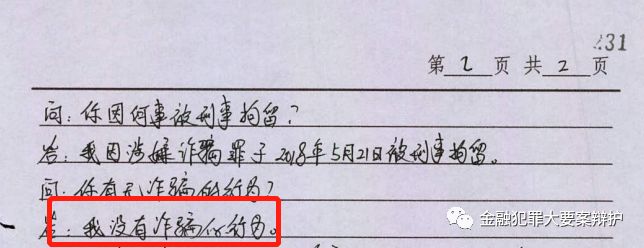 231
第 2 页 共 2 页
问：你因何事被刑事拘留？
答：我因涉嫌诈骗罪于2018年5月21日被刑事拘留。
问：你有无诈骗的行为？
答：我没有诈骗的行为。
金融犯罪大要案辩护